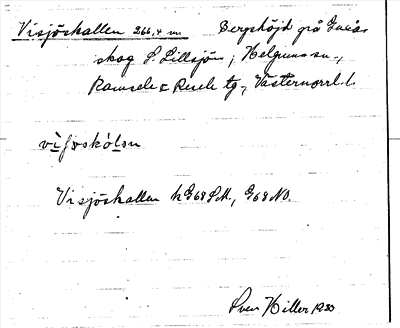 Visjöskallen 266,4 m Bergshöjd på
skog S. Lillsjön, Helgums sn.,
Ramsele o. Resele tg., Västernorrl. l.
Visjöskallen k G68 SV., G68 NO.
Sven Hiller 1930